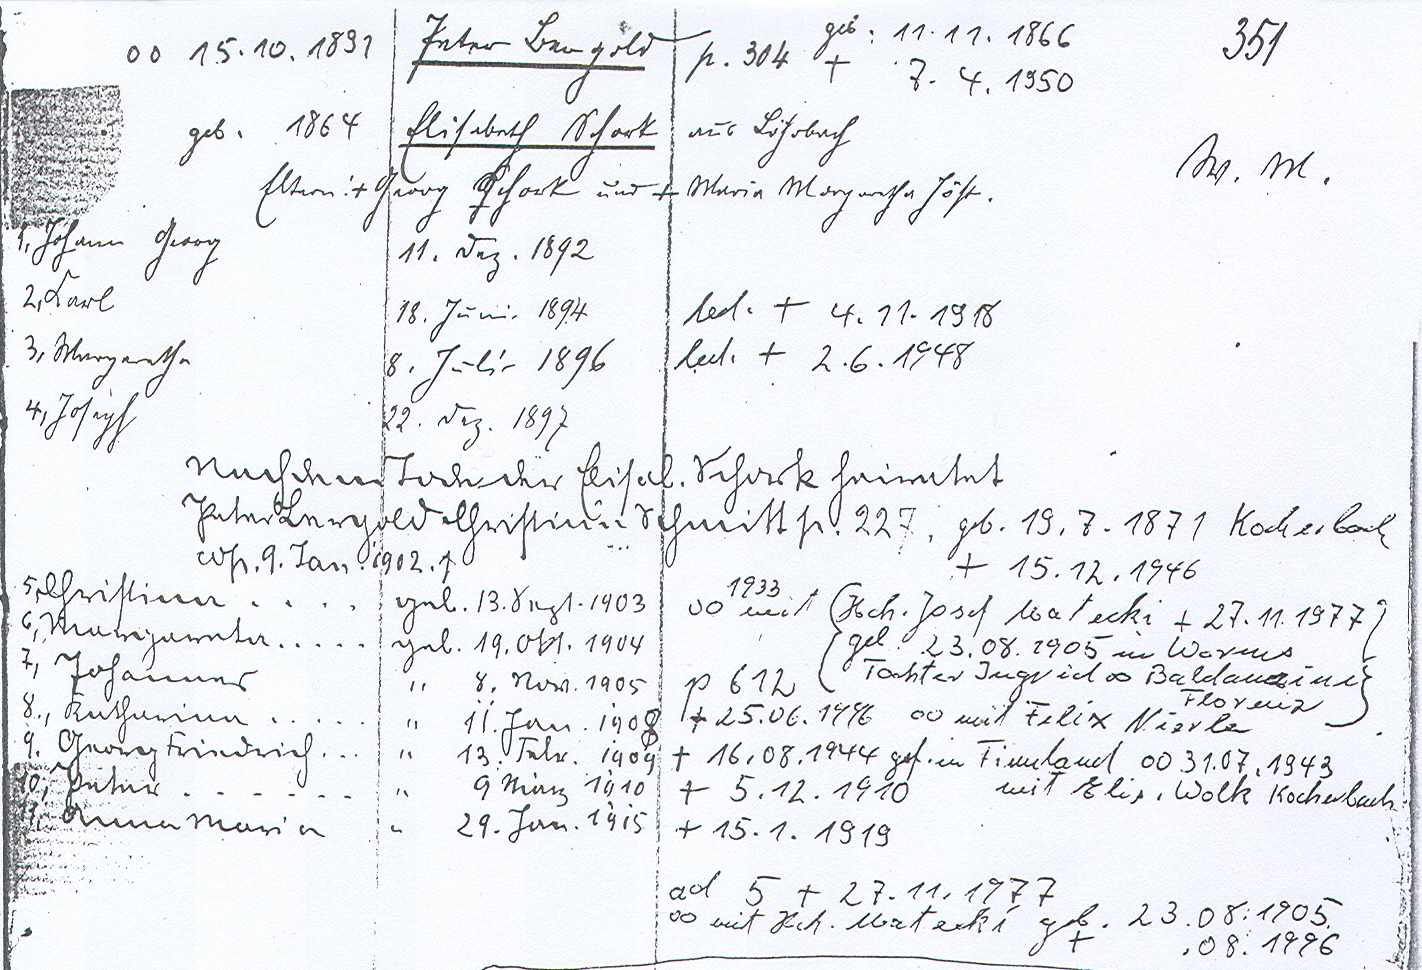 351
oo 15.10.1891 Peter Bergold p. 304 geb: 11.11.1866
+ 7.4.1950
geb. 1864 Elisabeth Schork aus Löhrbach
W. M.
Eltern: + Georg Schork und + Maria Margaretha Jöst.
1, Johann Georg 11. Dez. 1892
2, Karl 18. Juni 1894 led. + 4.11.1918
3, Margaretha 8. Juli 1896 led. + 2.6.1948
4, Joseph 22. Dez. 1897
Nach dem Tode der Elisab. Schork heiratet
Peter Bergold Christine Schmitt p. 227, geb. 19.7.1871 Kocherbach
9. Jan. 1902. + 15.12.1946
5, Christina . . . . geb. 13. Sept. 1903 oo 1933 mit (Hch. Josef Matecki + 27.11.1977)
6, Margareta . . . . . geb. 19. Okt. 1904 (geb 23.08.1905 in Worms
7, Johannes " 8. Nov. 1905 p 612 Tochter Ingrid oo
Florenz
8., Katharina . . . . . " 11. Jan. 1908 + 25.06.1996 oo mit Felix
9. Georg Friedrich . . . " 13. Febr. 1909 + 16.08.1944 gef. in Finnland oo 31.07.1943
10, Peter . . . . . . . " 9 März 1910 + 5.12.1910 mit Elis. Wolk Kocherbach.
11, Anna Maria " 29. Jan. 1915 + 15.1.1919
ad 5 + 27.11.1977
oo mit Hch. Matecki geb. 23.08.1905
+ .08.1996